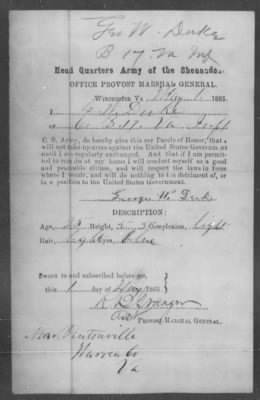 Geo W. Duke
B 17 Va Inf
Head Quarters Army of the Shenandoah
OFFICE PROVOST MARSHAL GENERAL.
WINCHESTER VA 1865.
I
of Va
C. S. Army, do hereby give this my Parole of Honor, that I
will not take up arms against the United States Government
until I am regularly exchanged. And that if I am permit-
ted to remain at my home I will conduct myself as a good
and peaceable citizen, and will respect the laws in force
where I reside, and will do nothing to the detriment of, or
in a position to the United States Government.
George W. Duke
DESCRIPTION:
Age, Height, Complexion, Light
Hair, Eyes, Blue
Sworn to and subscribed before me,
this 1 day of 1865
PROVOST MARSHAL GENERAL.
Near Bentonville
Warren Co
Va